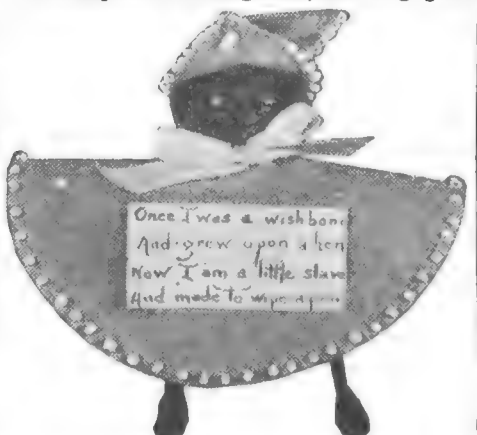 Once I was a wishbone
And grew upon a hen
Now I am a little slave
And made to wipe a pen